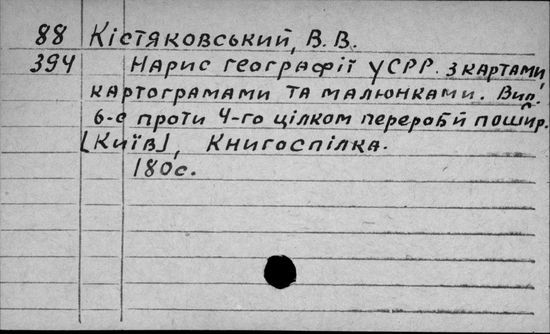 88 Кістяковський, В. В.
394 Нарис географії УСРР. з картами,
картограмами та малюнками. Вип.
6-е проти 4-го цілком перероб й пошир.
[Київ], Книгоспілка.
180с.